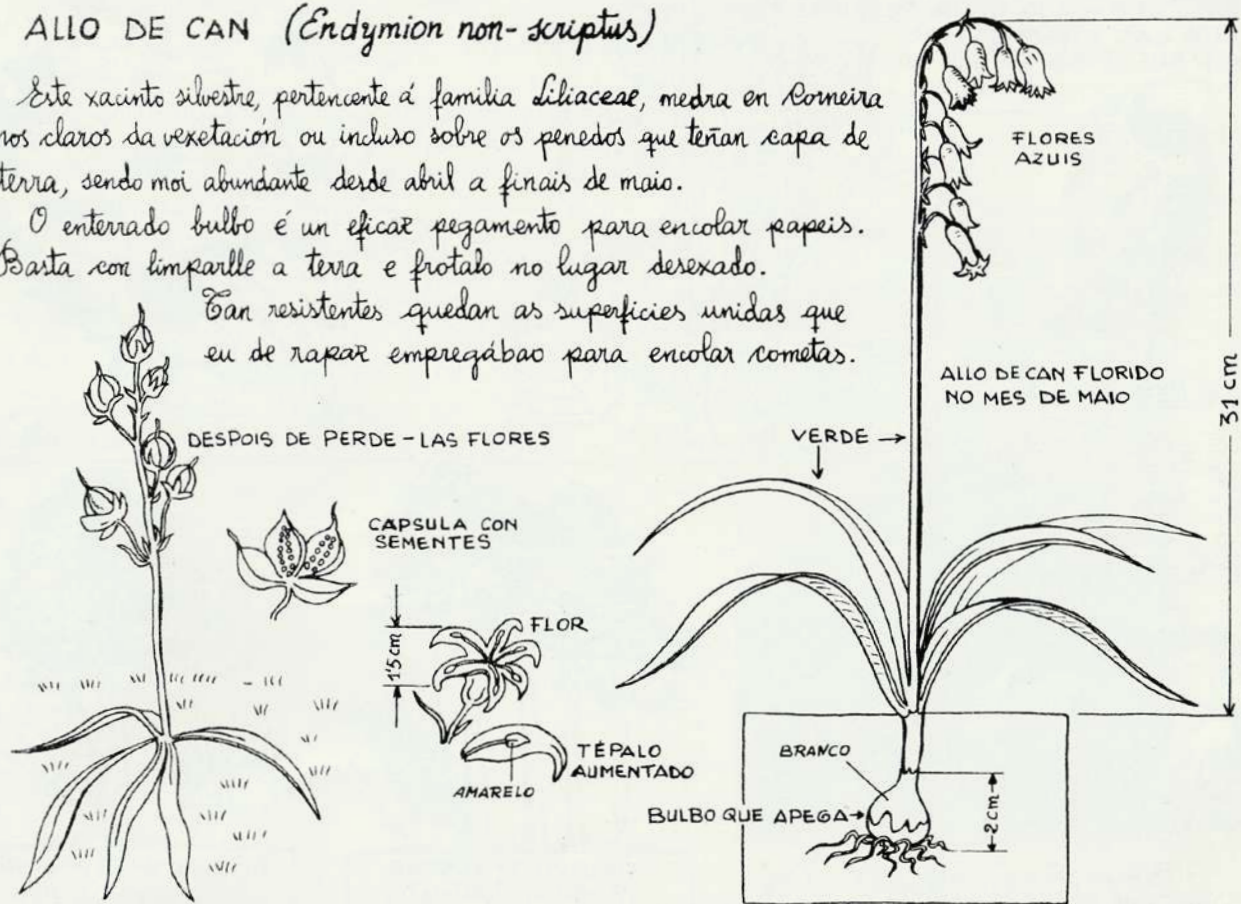 ALLO DE CAN (Endymion non-scriptus)
Este xacinto silvestre, pertencente á familia Liliaceae, medra en Corneira
nos claros da vexetación ou incluso sobre os penedos que teñan capa de
terra, sendo moi abundante desde abril a finais de maio.
O enterrado bulbo é un eficaz pegamento para encolar papeis.
Basta con limparlle a terra e frotalo no lugar desexado.
Tan resistentes quedan as superficies unidas que
eu de rapaz empregábao para encolar cometas.
FLORES
AZUIS
31 cm
ALLO DE CAN FLORIDO
NO MES DE MAIO
VERDE
DESPOIS DE PERDE-LAS FLORES
CAPSULA CON
SEMENTES
FLOR
1'5 cm
TÉPALO
AUMENTADO
AMARELO
BRANCO
BULBO QUE APEGA
2 cm